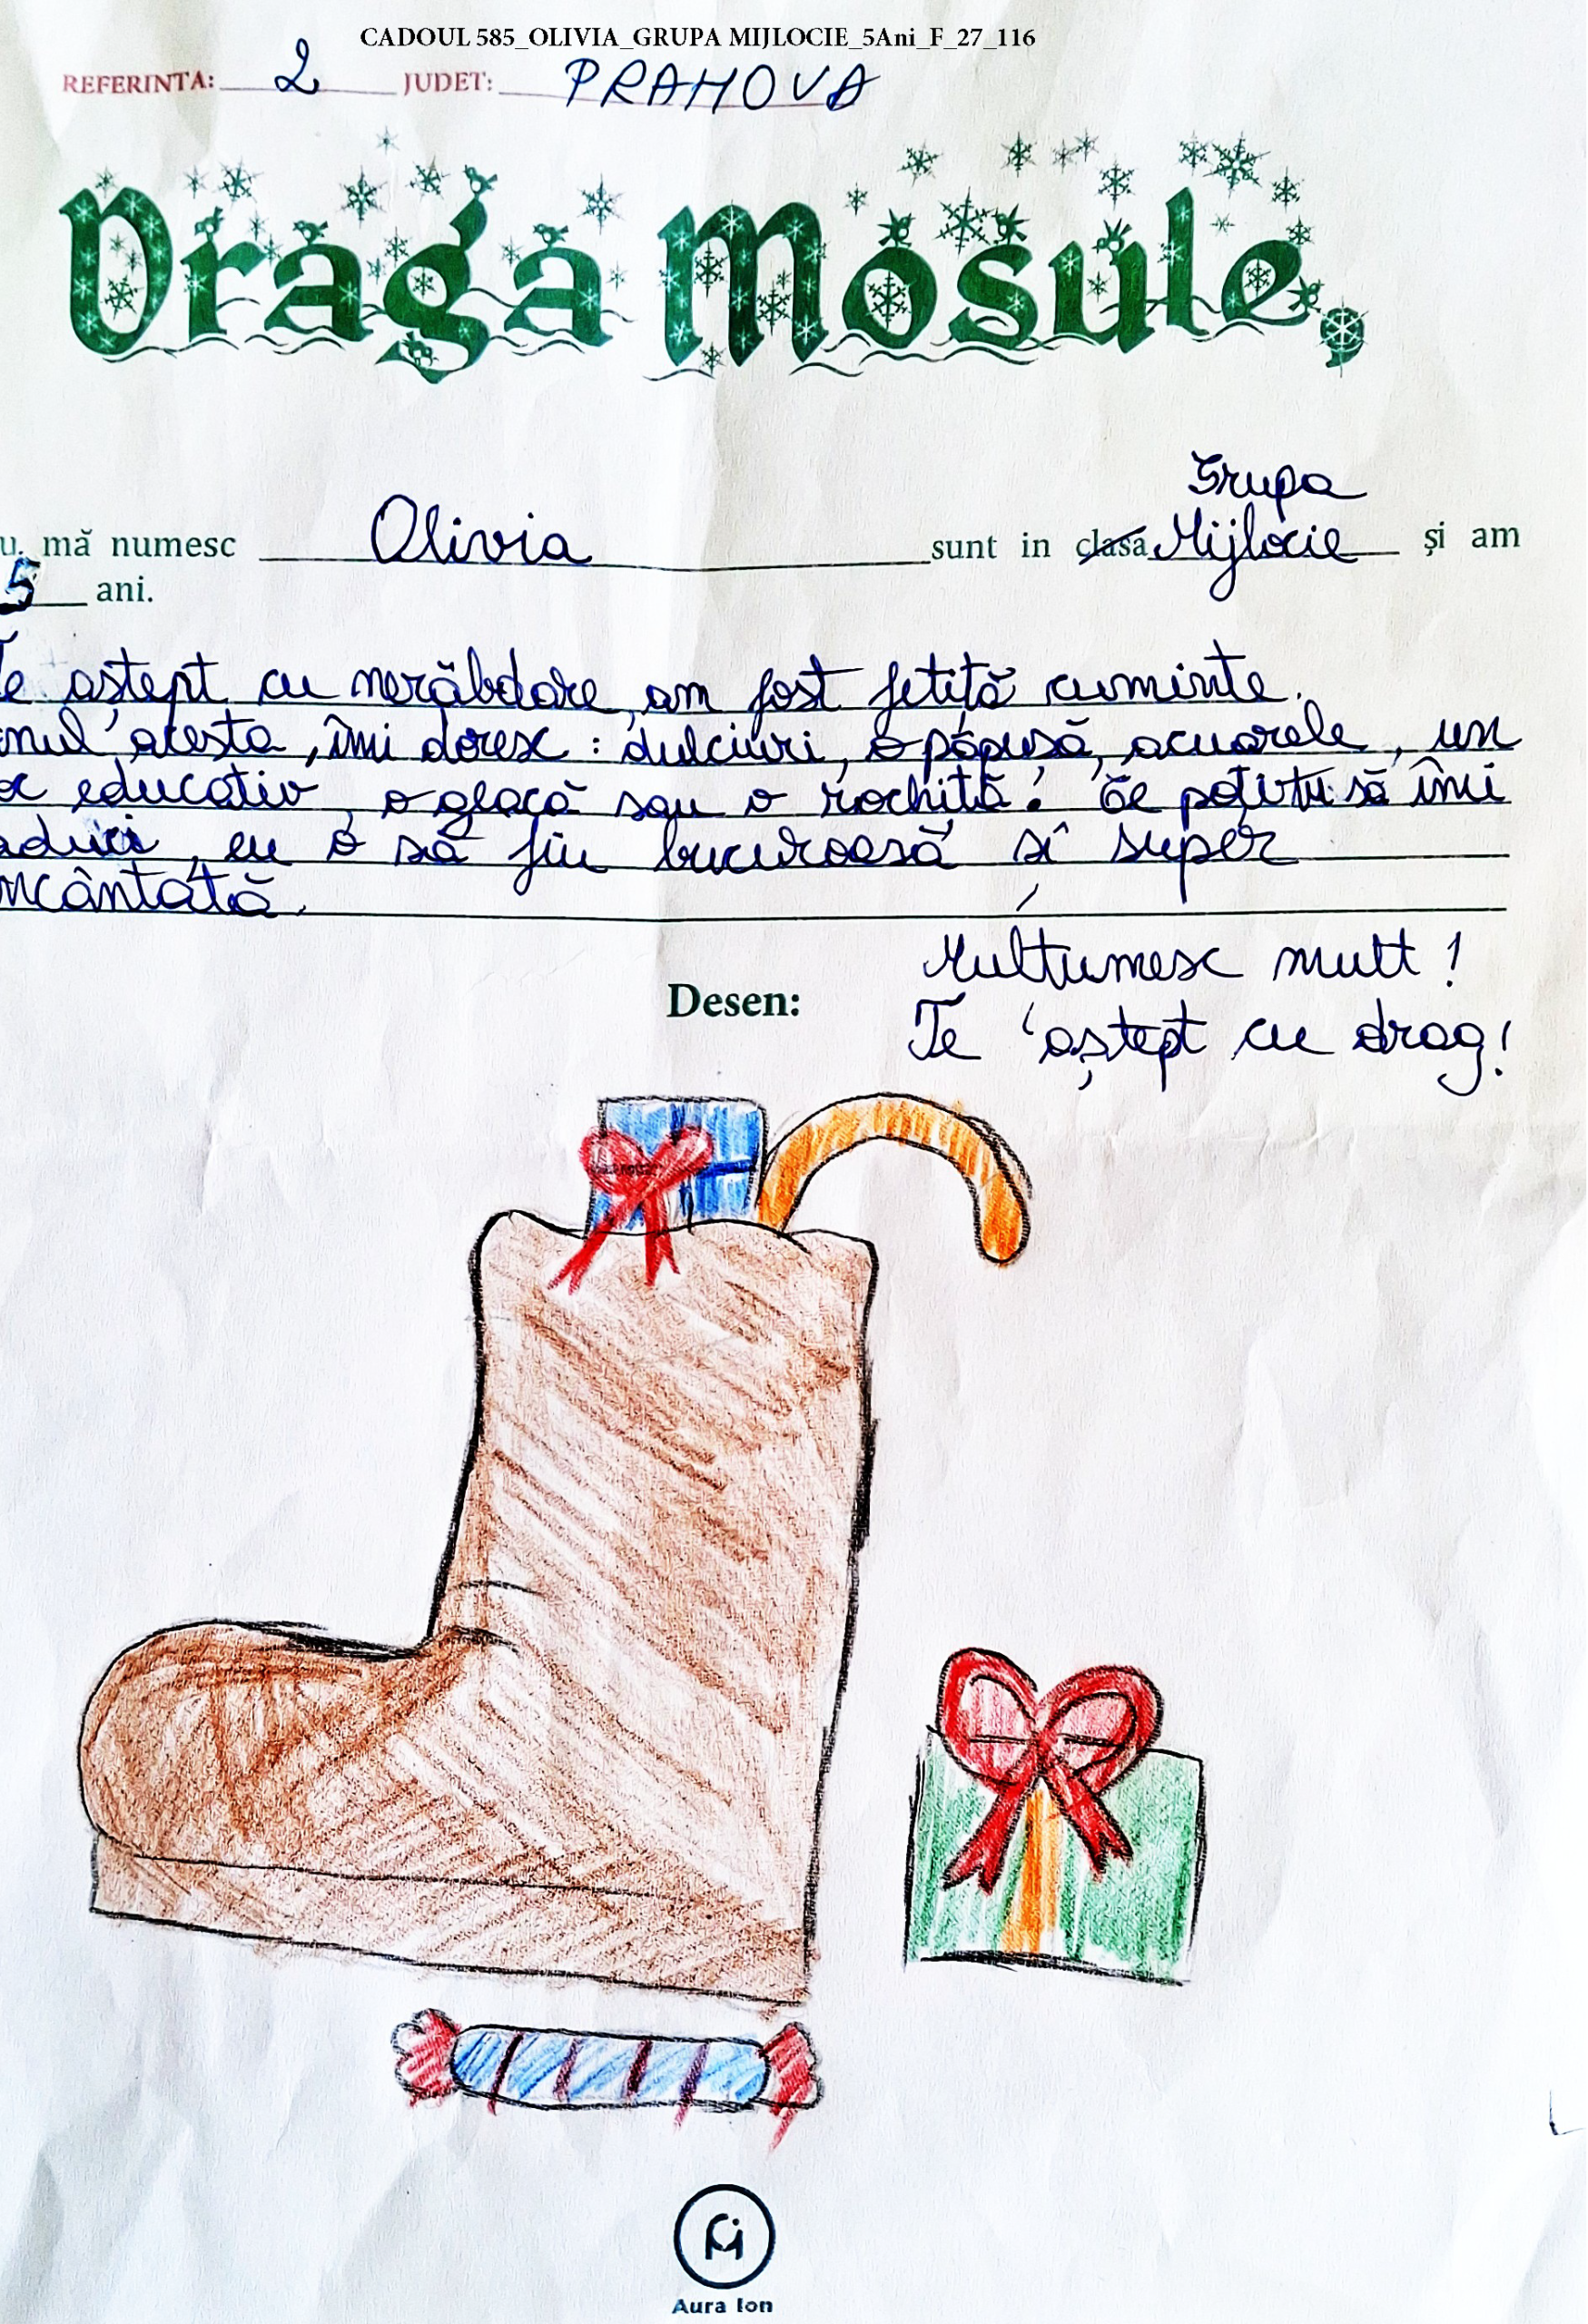 CADOUL 585_OLIVIA_GRUPA MIJLOCIE_5Ani_F_27_116
REFERINTA: 2 JUDET: PRAHOVA
Draga Mosule,
Grupa
u, mă numesc Olivia sunt in clasa Mijlocie și am
5 ani.
Te aștept cu nerăbdare, am fost fetiță cuminte.
nul acesta, îmi doresc: dulciuri, o păpușă, acuarele, un
oc educativ, o geacă sau o rochiță! Ce poți tu să îmi
aduci, eu o să fiu bucuroasă și super
ncântată.
Mulțumesc mult!
Desen:
Te aștept cu drag!
Aura Ion